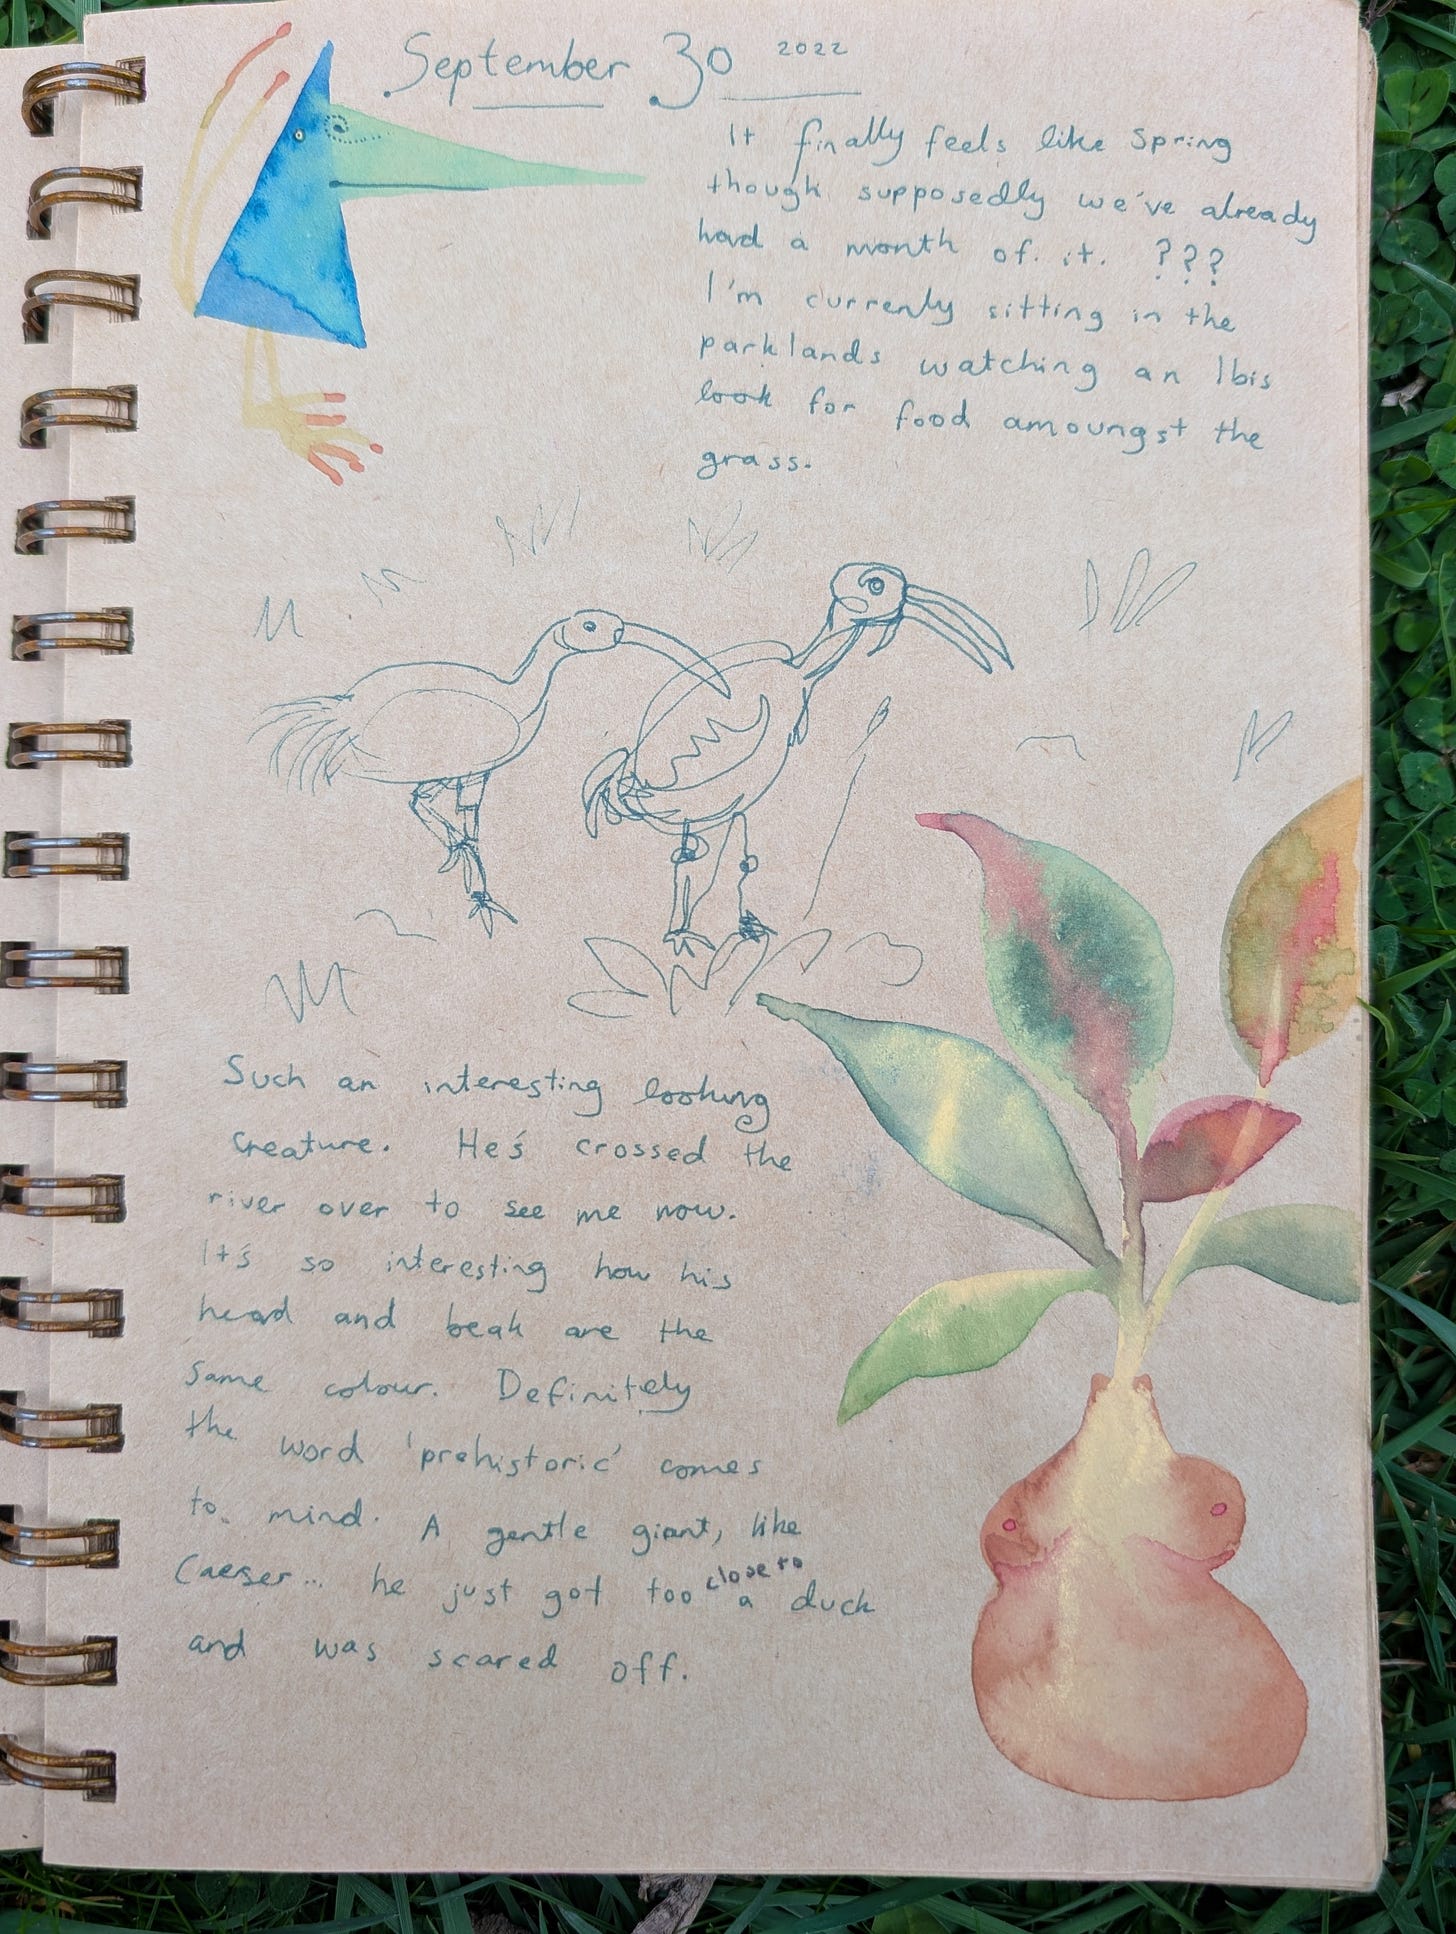 September 30 2022
It finally feels like Spring
though supposedly we've already
had a month of it. ???
I'm currenly sitting in the
parklands watching an Ibis
look for food amoungst the
grass.
Such an interesting looking
Creature. He's crossed the
river over to see me now.
It's so interesting how his
head and beak are the
Same colour. Definitely
the word 'prehistoric' comes
to mind. A gentle giant, like
Caeser... he just got too close to a duck
and was scared off.